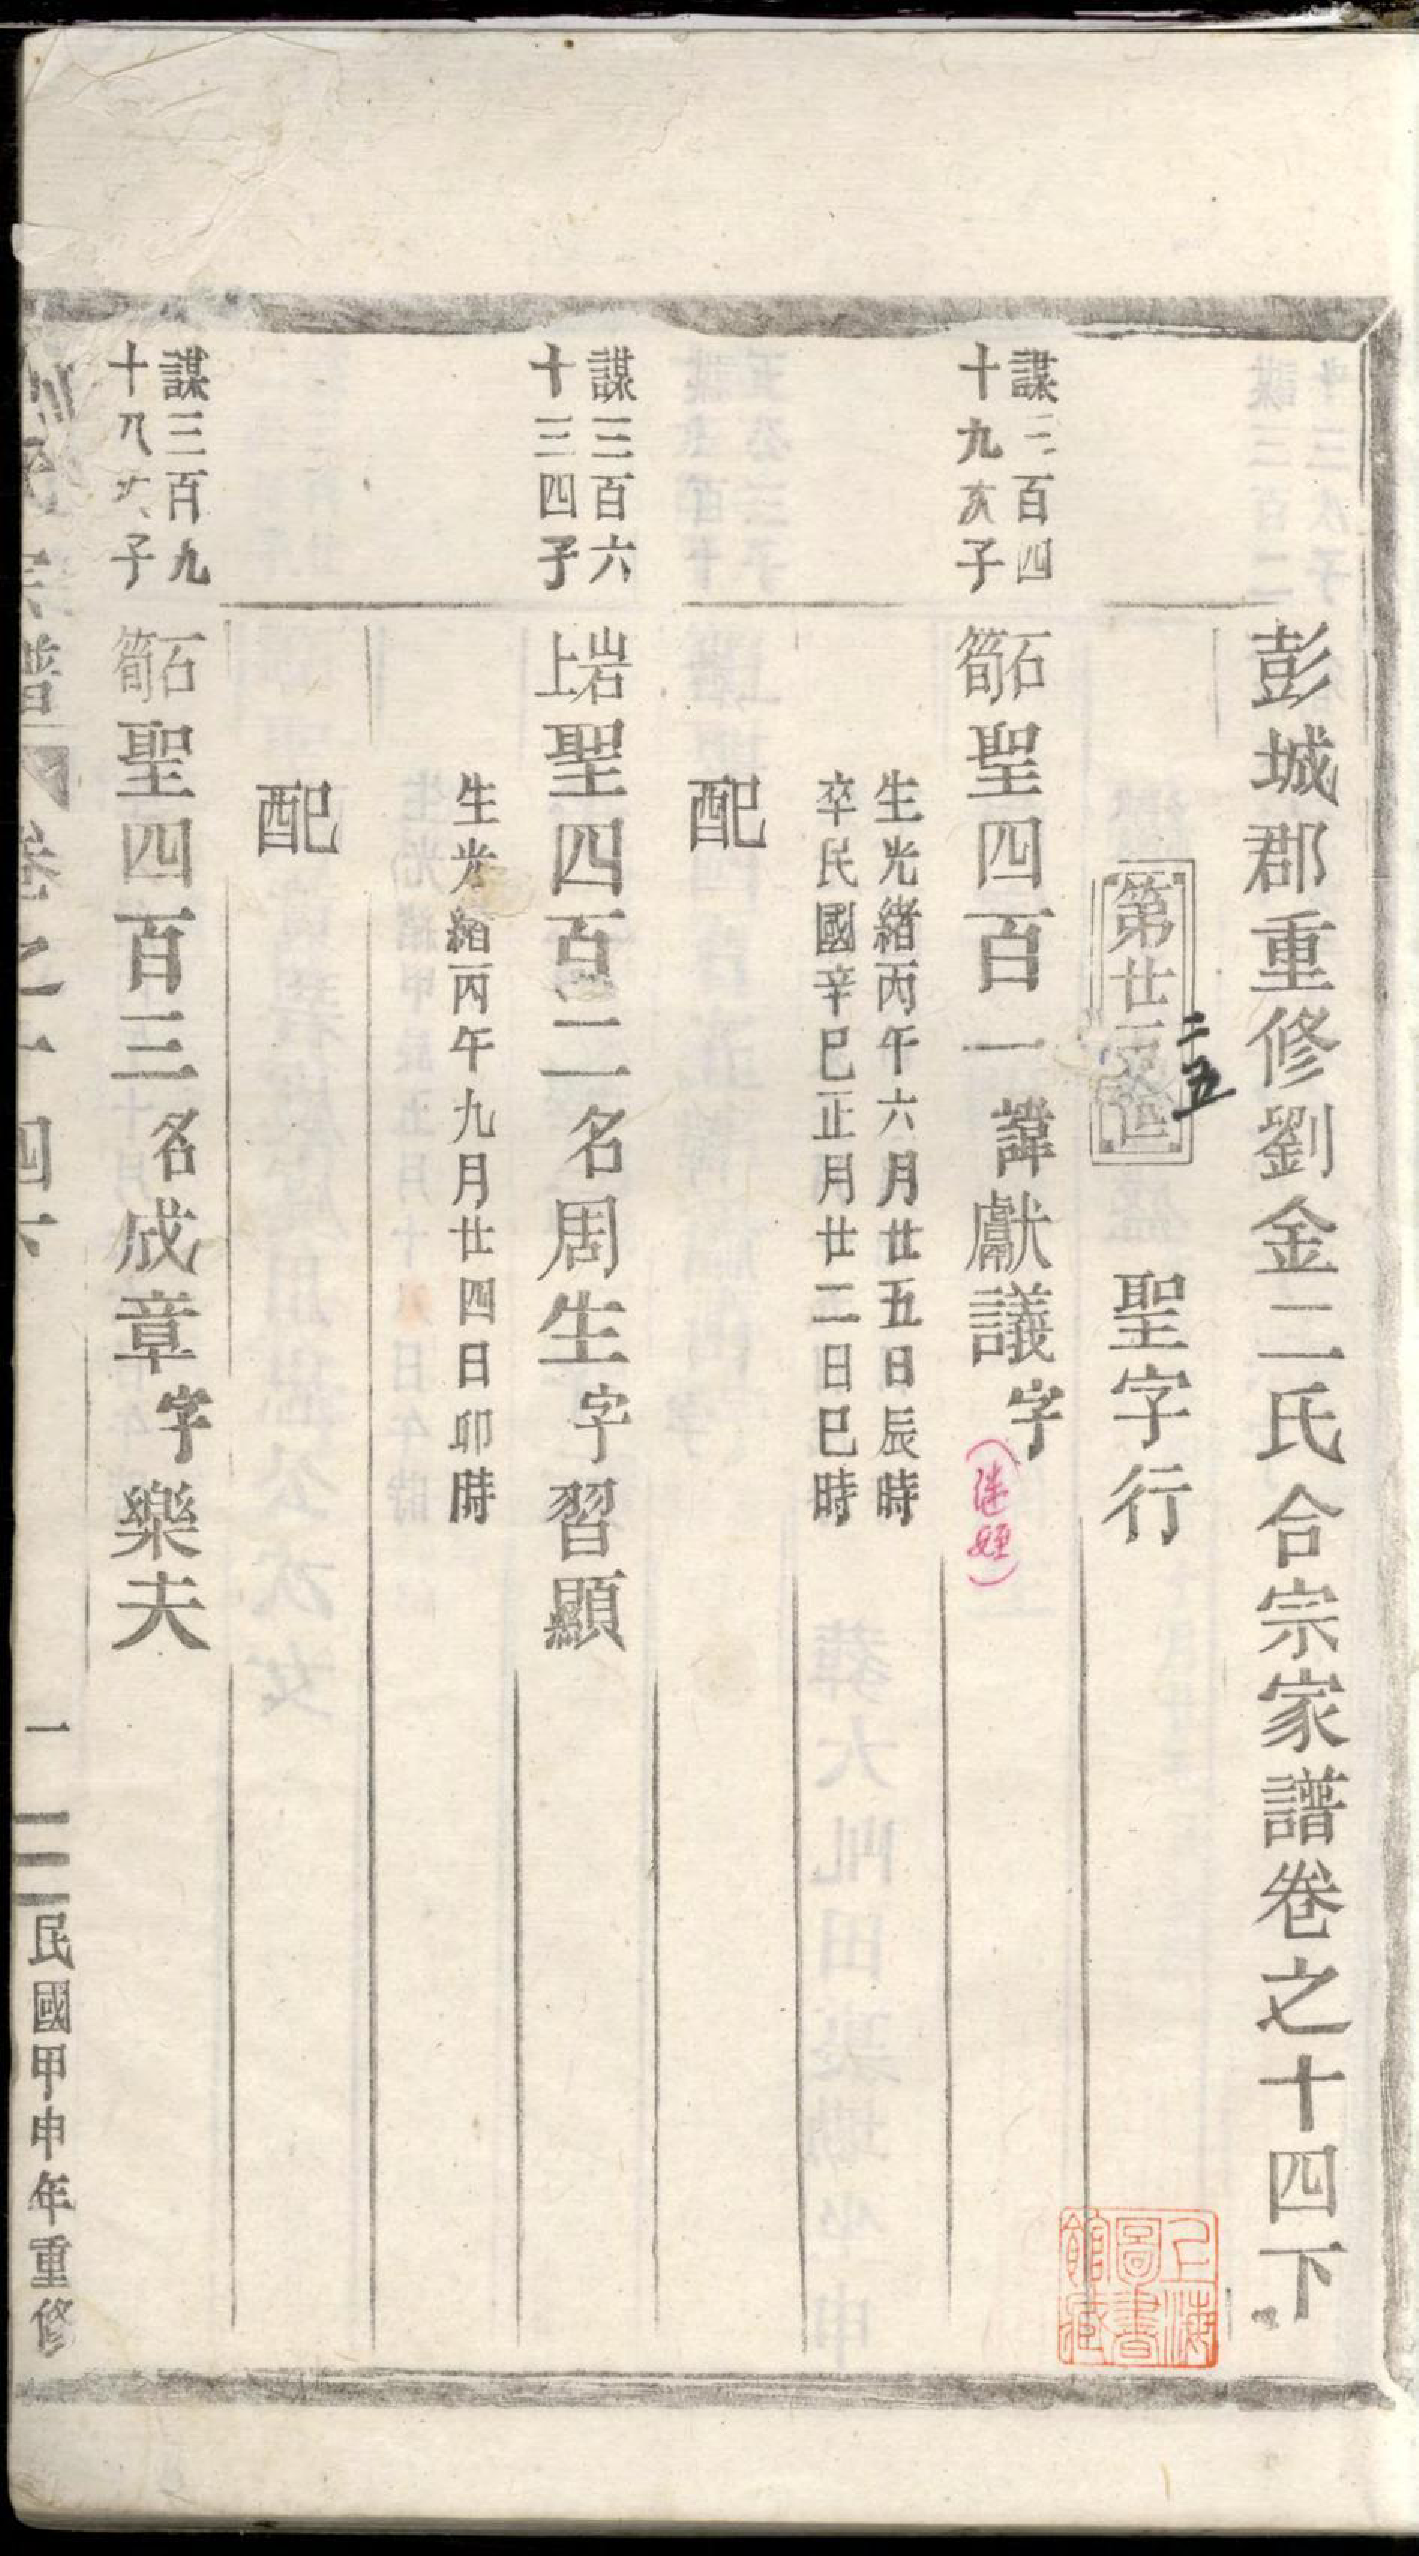 彭城郡重修劉金二氏合宗家譜卷之十四下
第廿
二五
聖字行
謀三百四
十九次子
石筍聖四百一諱獻議字
生光緒丙午六月廿五日辰時
卒民國辛巳正月廿二日巳時
配
謀三百六
十三四子
岩上聖四百二名周生字習顯
生光緒丙午九月廿四日卯時
配
謀三百九
十八 子
石筍聖四百三名成章字樂夫
氏宗譜
卷之十四下
一
民國甲申年重修
上海圖書館藏